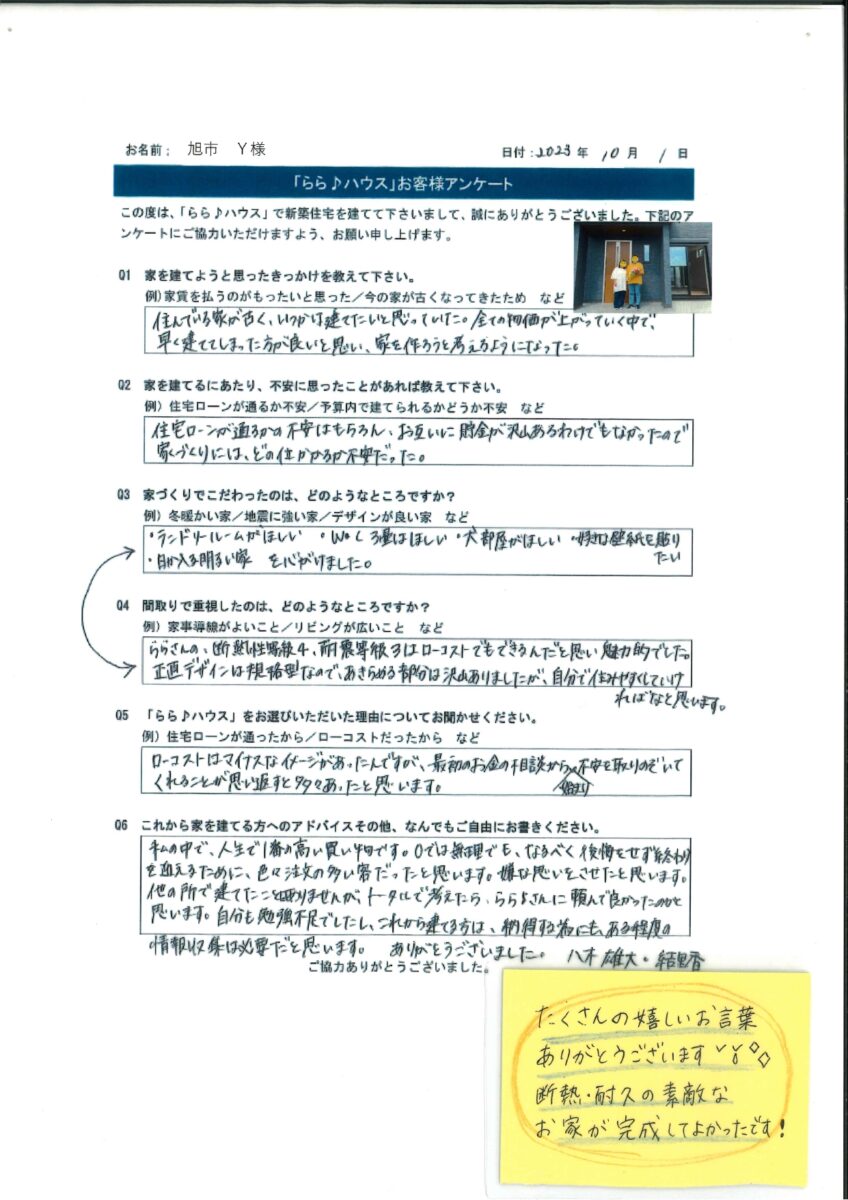 お名前： 旭市　Y様
日付：2023 年 10 月 1 日
「らら♪ハウス」お客様アンケート
この度は、「らら♪ハウス」で新築住宅を建てて下さいまして、誠にありがとうございました。下記のア
ンケートにご協力いただけますよう、お願い申し上げます。
Q1 家を建てようと思ったきっかけを教えて下さい。
例）家賃を払うのがもったいと思った／今の家が古くなってきたため　など
住んでいる家が古く、いつかは建てたいと思っていた。全ての物価が上がっていく中で、
早く建ててしまった方が良いと思い、家を作ろうと考えるようになった。
Q2 家を建てるにあたり、不安に思ったことがあれば教えて下さい。
例）住宅ローンが通るか不安／予算内で建てられるかどうか不安　など
住宅ローンが通るかの不安はもちろん、お互いに貯金が沢山あるわけでもなかったので
家づくりには、どの位かかるか不安だった。
Q3 家づくりでこだわったのは、どのようなところですか？
例）冬暖かい家／地震に強い家／デザインが良い家　など
・ランドリールームがほしい ・W.C 3畳はほしい ・犬部屋がほしい ・好きな壁紙を貼り
たい
・日が入る明るい家　を心がけました。
Q4 間取りで重視したのは、どのようなところですか？
例）家事導線がよいこと／リビングが広いこと　など
ららさんの、断熱性等級4、耐震等級3はローコストでもできるんだと思い魅力的でした。
正直デザインは規格型なので、あきらめる部分は沢山ありましたが、自分で住みやすくしていけ
ればなと思います。
Q5 「らら♪ハウス」をお選びいただいた理由についてお聞かせください。
例）住宅ローンが通ったから／ローコストだったから　など
ローコストはマイナスなイメージがあったんですが、最初のお金の相談から始まり不安を取りのぞいて
くれることが思い返すと多々あったと思います。
Q6 これから家を建てる方へのアドバイスその他、なんでもご自由にお書きください。
私の中で、人生で1番の高い買い物です。0では無理でも、なるべく後悔をせず終わり
を迎えるために、色々注文の多い客だったと思います。嫌な思いをさせたと思います。
他の所で建てたことありませんが、トータルで考えたら、ららさんに頼んで良かったのかと
思います。自分も勉強不足でしたし、これから建てる方は、納得する為にも、ある程度の
情報収集は必要だと思います。　ありがとうございました。 八木 雄大・結里香
ご協力ありがとうございました。
たくさんの嬉しいお言葉
ありがとうございます
断熱・耐久の素敵な
お家が完成してよかったです！